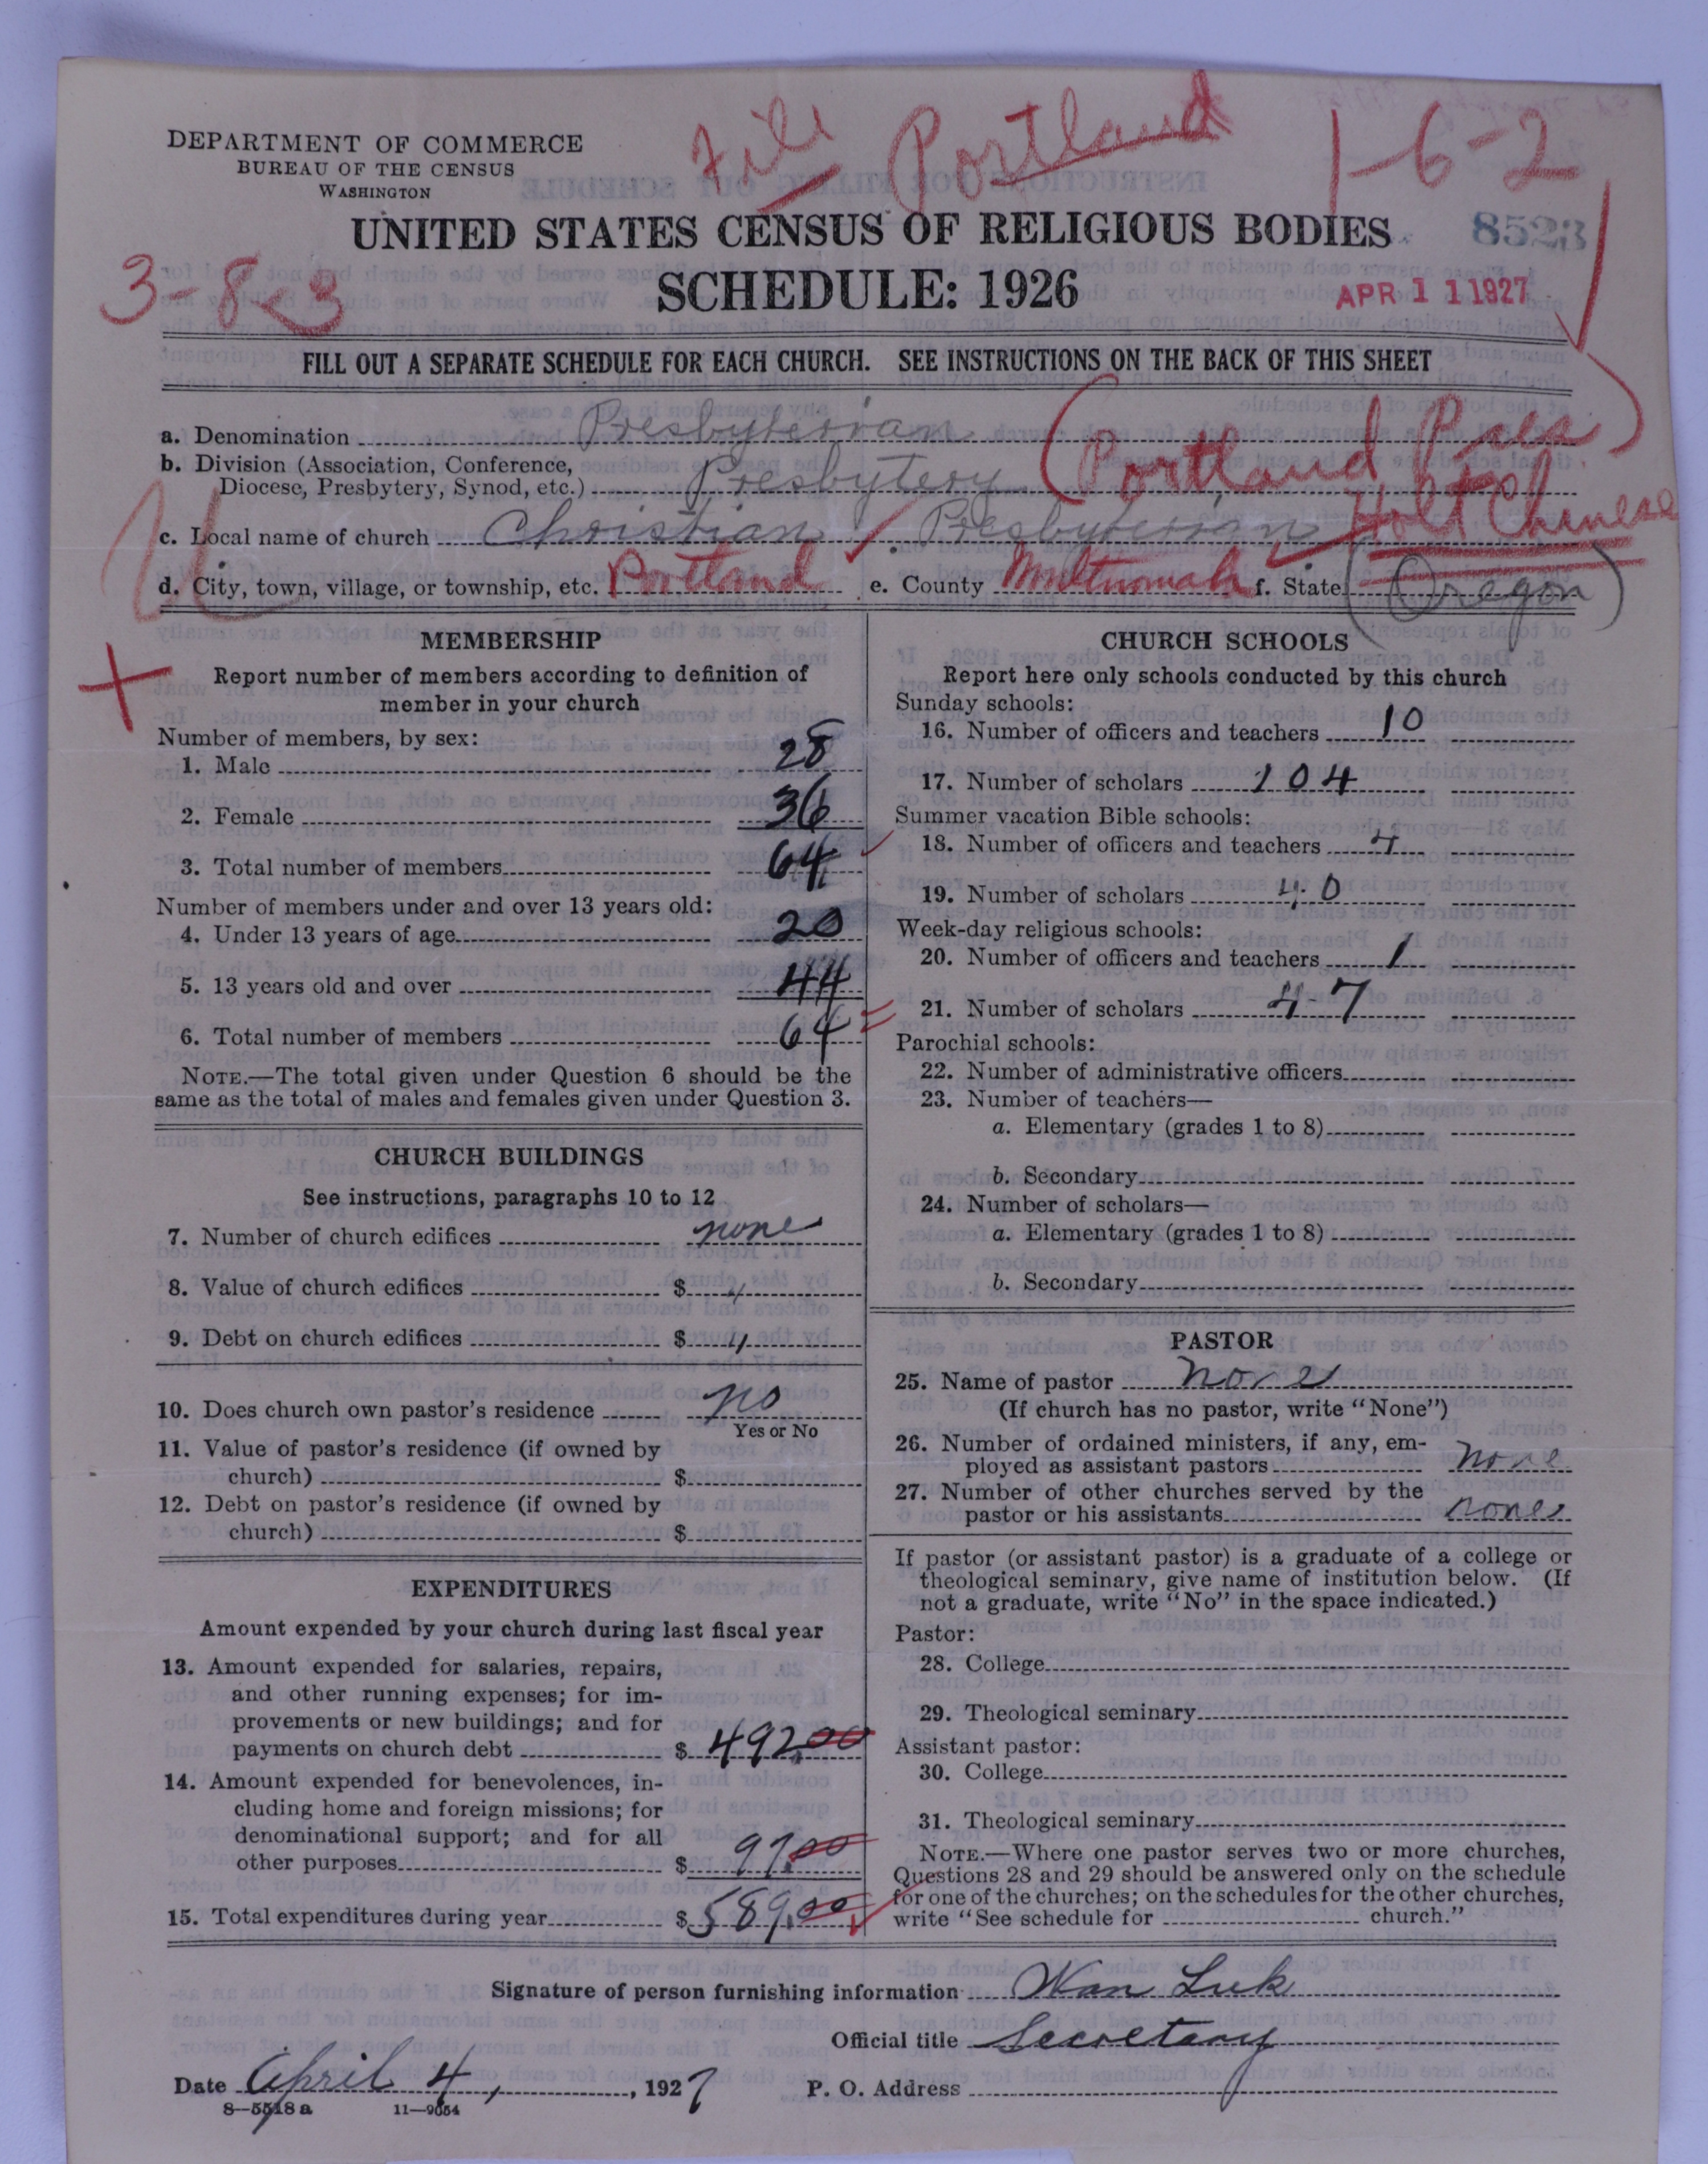 File Portland 1-6-2
DEPARTMENT OF COMMERCE
BUREAU OF THE CENSUS
WASHINGTON
UNITED STATES CENSUS OF RELIGIOUS BODIES 8523
3-8<3 SCHEDULE: 1926 APR 11 1927
FILL OUT A SEPARATE SCHEDULE FOR EACH CHURCH. SEE INSTRUCTIONS ON THE BACK OF THIS SHEET
a. Denomination Presbyterian
b. Division (Association, Conference,
Diocese, Presbytery, Synod, etc.) Presbytery (Portland Pres)
c. Local name of church Christian Presbyterian Holt Chinese
d. City, town, village, or township, etc. Portland e. County Multnomah f. State (Oregon)
MEMBERSHIP
Report number of members according to definition of
member in your church
Number of members, by sex:
1. Male 28
2. Female 36
3. Total number of members 64
Number of members under and over 13 years old:
4. Under 13 years of age 20
5. 13 years old and over 44
6. Total number of members 64
NOTE.—The total given under Question 6 should be the
same as the total of males and females given under Question 3.
CHURCH BUILDINGS
See instructions, paragraphs 10 to 12
7. Number of church edifices none
8. Value of church edifices $ "
9. Debt on church edifices $ "
10. Does church own pastor's residence no
Yes or No
11. Value of pastor's residence (if owned by
church) $
12. Debt on pastor's residence (if owned by
church) $
EXPENDITURES
Amount expended by your church during last fiscal year
13. Amount expended for salaries, repairs,
and other running expenses; for im-
provements or new buildings; and for
payments on church debt $ 492.00
14. Amount expended for benevolences, in-
cluding home and foreign missions; for
denominational support; and for all
other purposes $ 97.00
15. Total expenditures during year $ 589.00
CHURCH SCHOOLS
Report here only schools conducted by this church
Sunday schools:
16. Number of officers and teachers 10
17. Number of scholars 104
Summer vacation Bible schools:
18. Number of officers and teachers 4
19. Number of scholars 40
Week-day religious schools:
20. Number of officers and teachers 1
21. Number of scholars 47
Parochial schools:
22. Number of administrative officers
23. Number of teachers—
a. Elementary (grades 1 to 8)
b. Secondary
24. Number of scholars—
a. Elementary (grades 1 to 8)
b. Secondary
PASTOR
25. Name of pastor none
(If church has no pastor, write "None")
26. Number of ordained ministers, if any, em-
ployed as assistant pastors none
27. Number of other churches served by the
pastor or his assistants none
If pastor (or assistant pastor) is a graduate of a college or
theological seminary, give name of institution below. (If
not a graduate, write "No" in the space indicated.)
Pastor:
28. College
29. Theological seminary
Assistant pastor:
30. College
31. Theological seminary
NOTE.—Where one pastor serves two or more churches,
Questions 28 and 29 should be answered only on the schedule
for one of the churches; on the schedules for the other churches,
write "See schedule for church."
Signature of person furnishing information Wan Luk
Official title Secretary
Date April 4, 1927 P. O. Address
8—5518a 11—9054